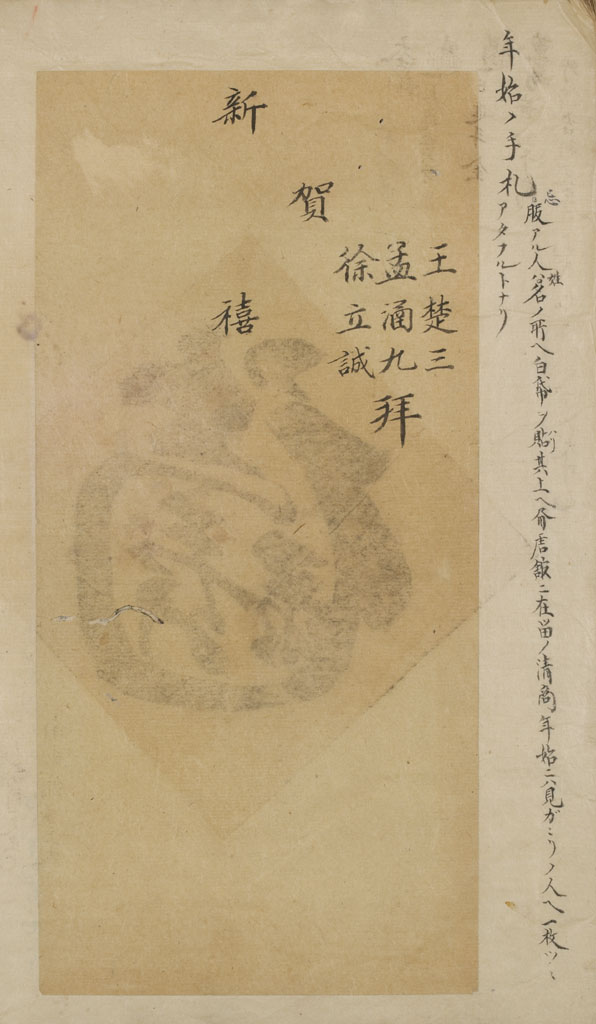 年始ノ手札
忌服アル人ハ姓名ノ所ヘ白帋ヲ貼其上ヘ唐館ニ在留ノ清商年始ニハ見ガヽリノ人ヘ一枚ツヽ
アタフルトナリ
王楚三
孟涵九
徐立誠
拜
賀
新禧